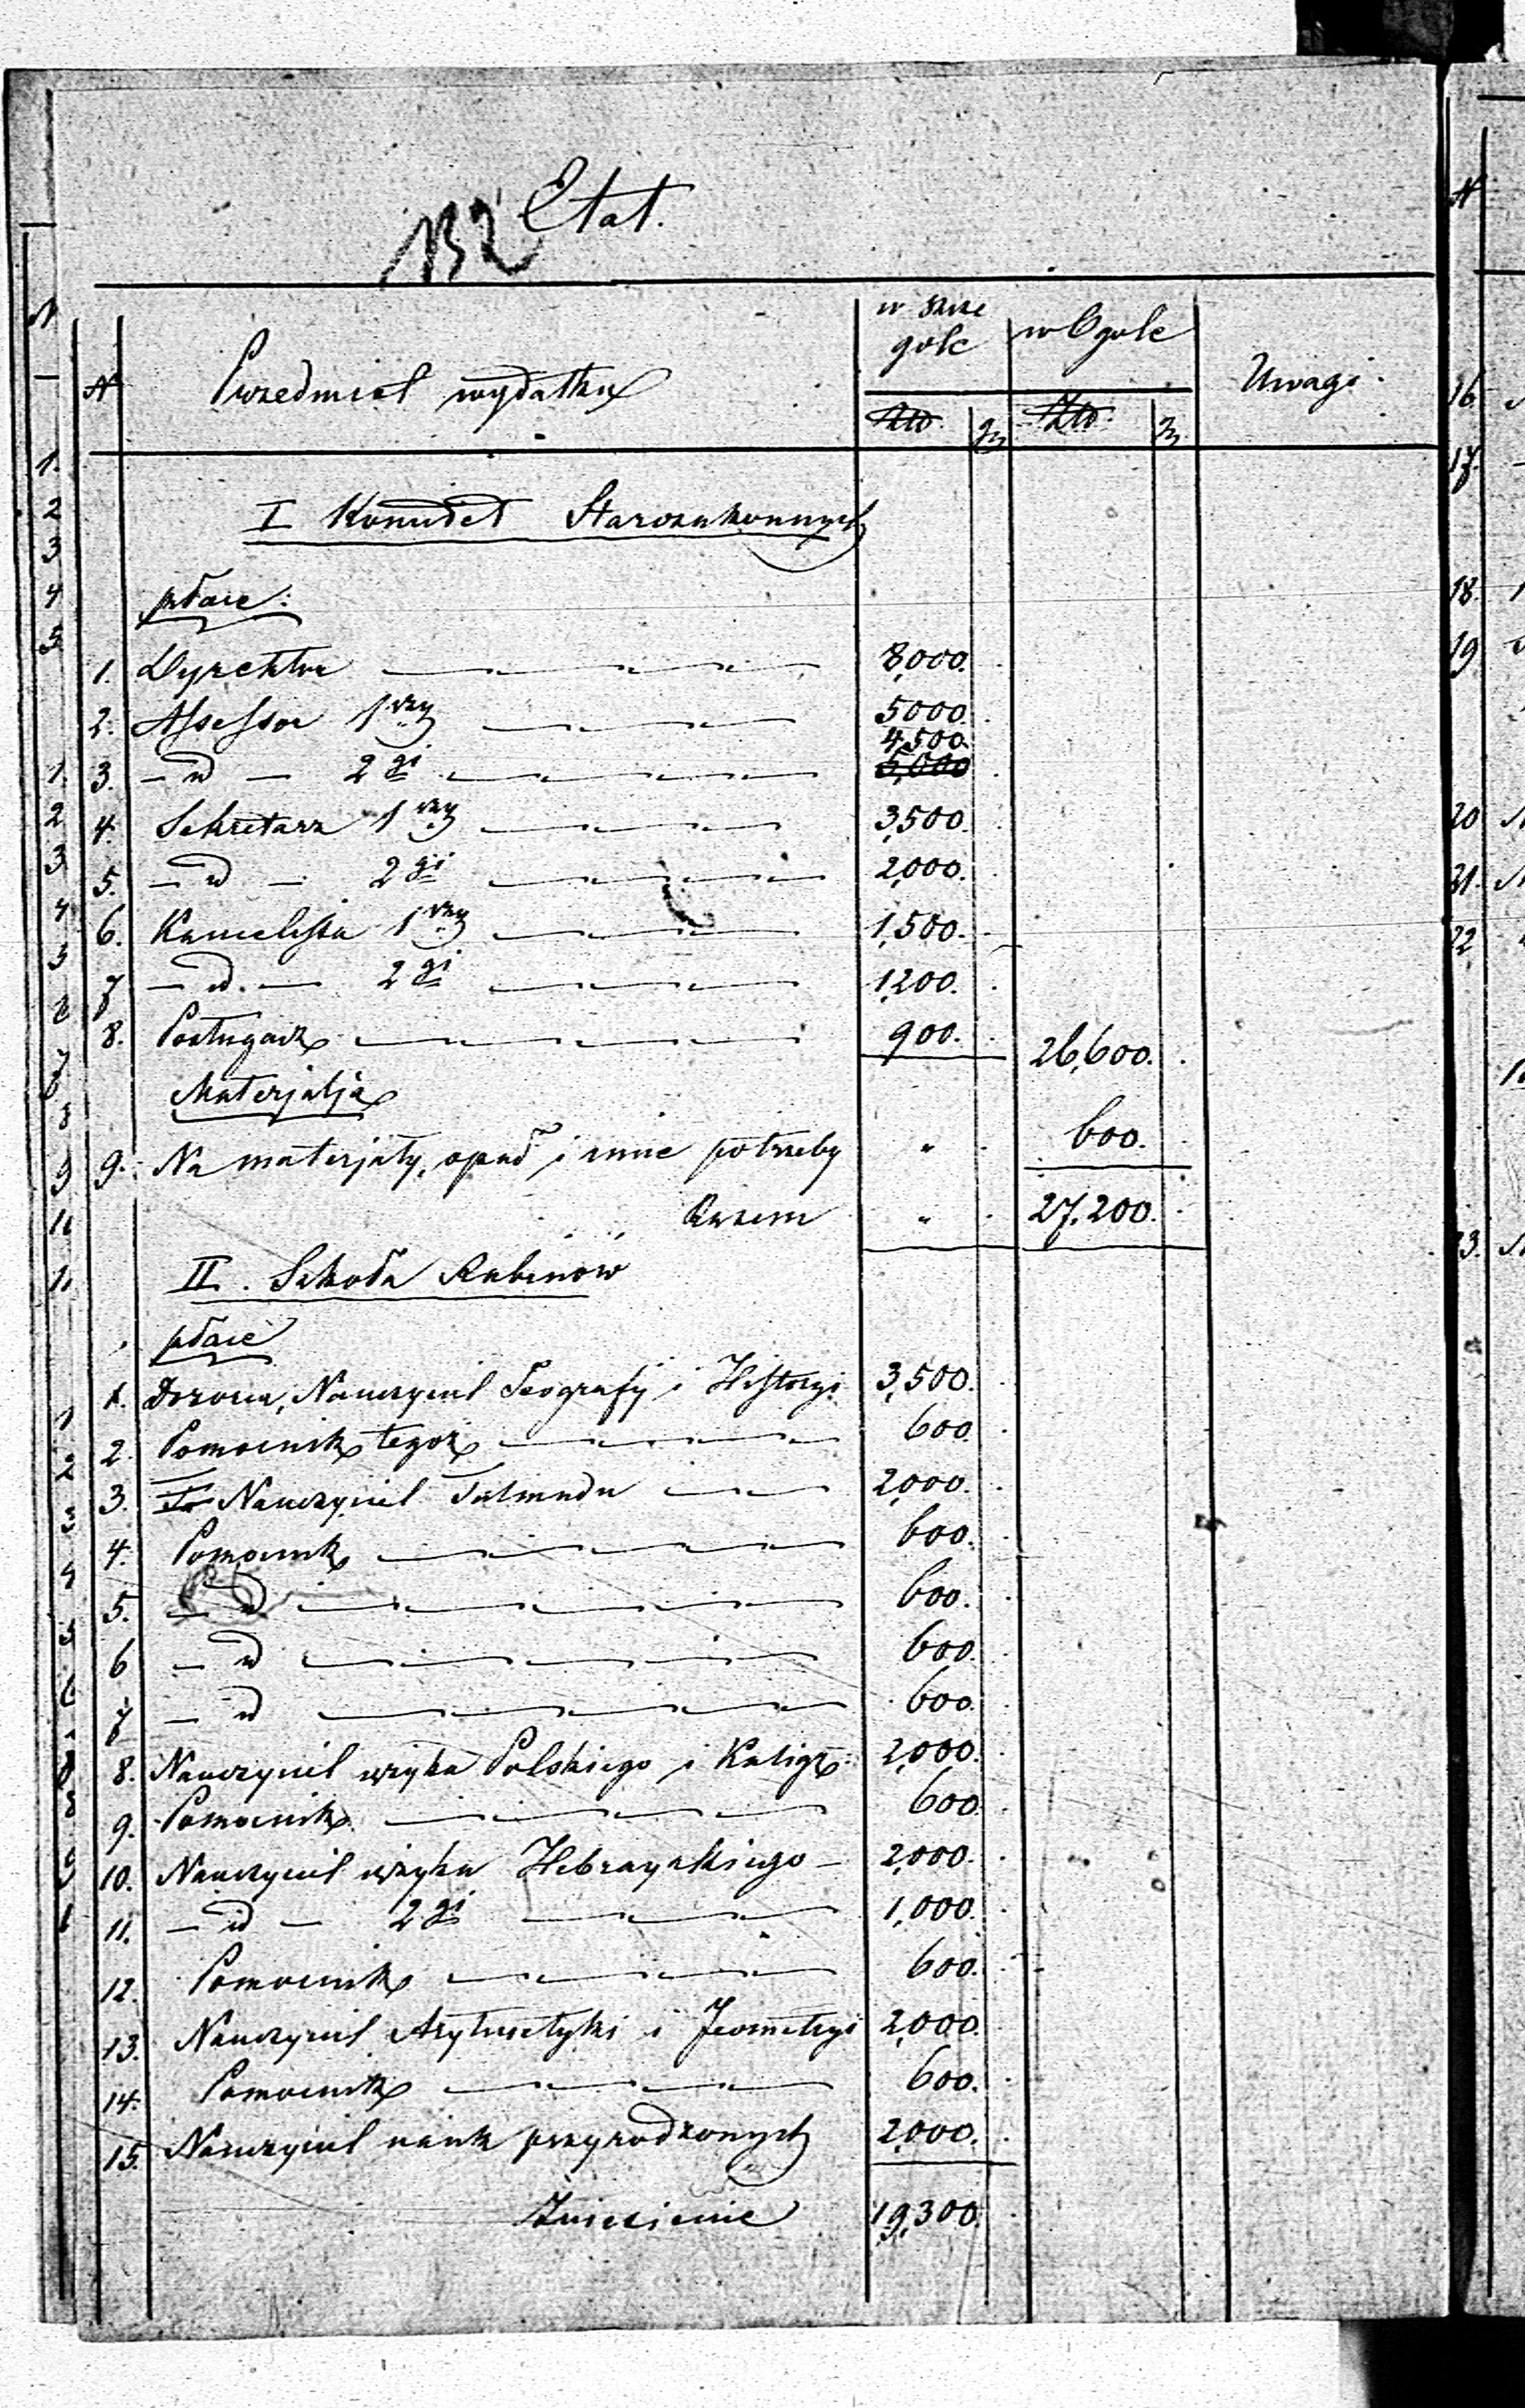 Etat.
132
N Przedmiot wydatku w szcze gole w Ogole Uwagi.
Złp. gr Złp. gr
I Komitet Starozakonnych
płace:
1. Dyrektor 8,000.
2. Assessor 1wszy 5000.
4,500.
3. — id — 2gi 5,000
4. Sekretarz 1wszy 3,500.
5. — id — 2gi 2,000.
6. Kancelista 1wszy 1,500.
7 — id. — 2gi 1,200.
8. Posługacz 900. 26,600.
Materjalja
9. Na materjały, opał i inne potrzeby " 600.
Razem " 27,200.
II. Szkoła Rabinów
płace
1. Dozorca, Nauczyciel Geografij i Historyi 3,500.
2. Pomocnik tegoż 600.
3. Nauczyciel Talmudu 2,000.
4. Pomocnik 600.
5. — id 600.
6 — id 600.
7 — id 600.
8. Nauczyciel języka Polskiego i Kaligr: 2,000.
9. Pomocnik 600.
10. Nauczyciel języka Hebrayskiego — 2,000.
11. — id — 2gi 1,000.
12. Pomocnik 600.
13. Nauczyciel Arytmetyki i Jeometryi 2,000.
14. Pomocnik 600.
15. Nauczyciel nauk przyrodzonych 2,000.
Zniesienie 19,300.